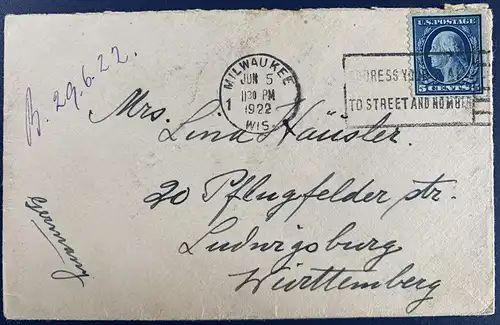 U.S. POSTAGE
5 CENTS 5
MILWAUKEE
JUN 5
1130 PM
1922
1
WIS.
ADDRESS YOUR
TO STREET AND NUMBER
B. 29.6.22.
Mrs. Lina Häusler.
20 Pflugfelder str.
Ludwigsburg
Württemberg
Germany